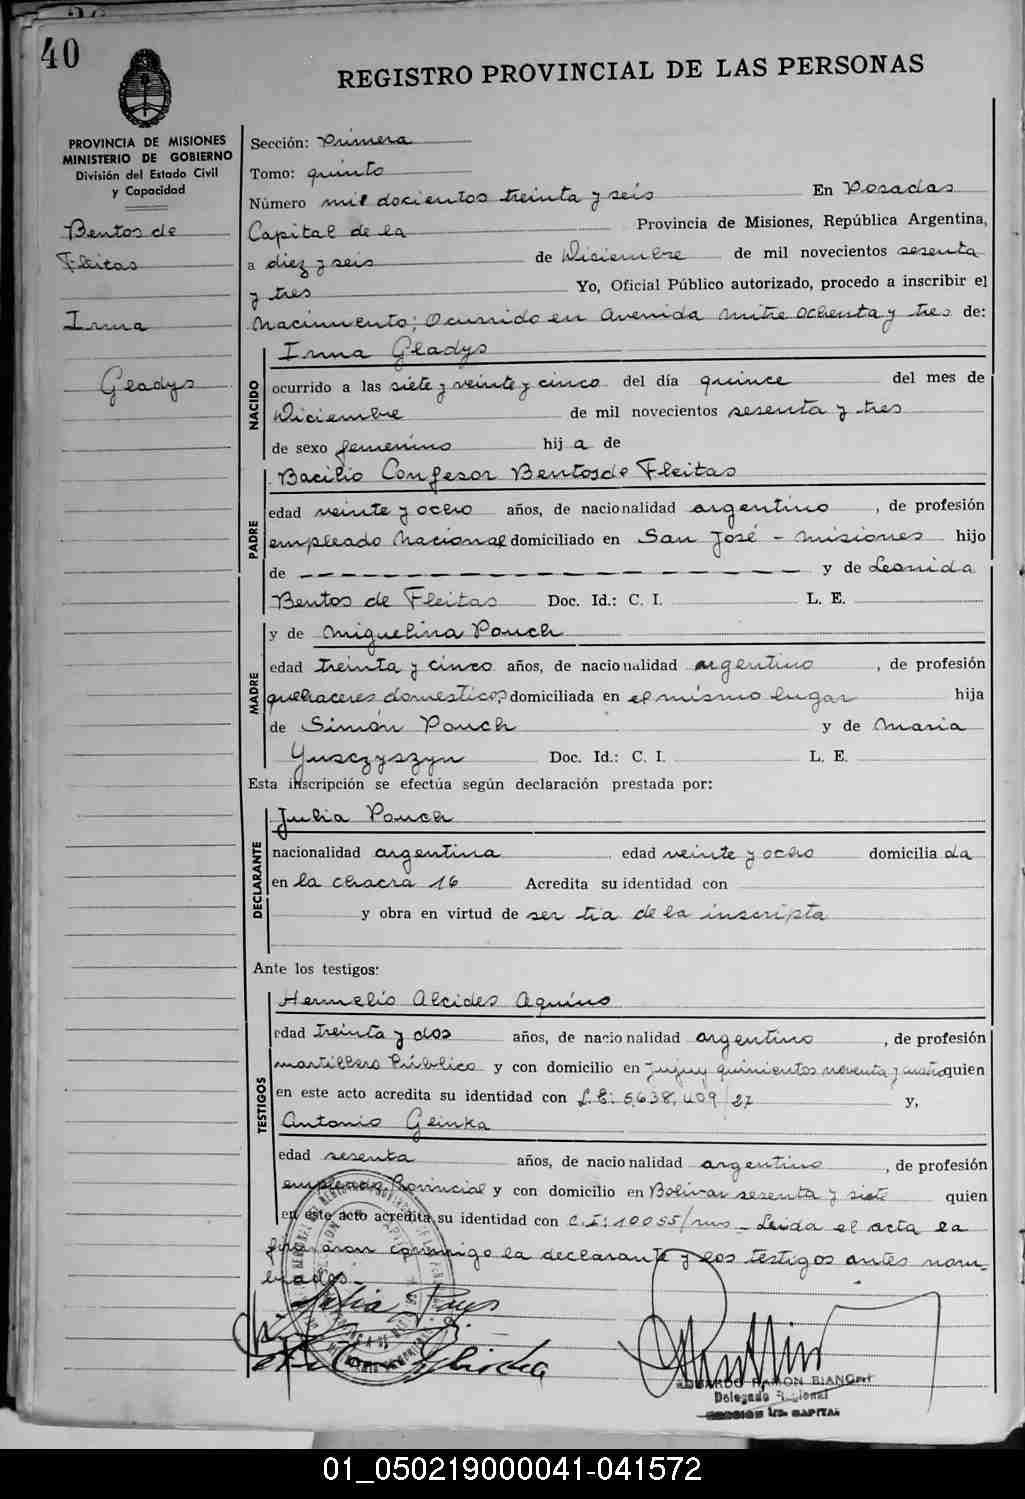 40
REGISTRO PROVINCIAL DE LAS PERSONAS
PROVINCIA DE MISIONES
MINISTERIO DE GOBIERNO
División del Estado Civil
y Capacidad
Bentos de
Fleitas
Irma
Gladys
Sección: Primera
Tomo: quinto
Número mil docientos treinta y seis En Posadas
Capital de la Provincia de Misiones, República Argentina,
a diez y seis de Diciembre de mil novecientos sesenta
y tres Yo, Oficial Público autorizado, procedo a inscribir el
Nacimiento; Ocurrido en Avenida Mitre ochenta y tres de:
NACIDO
Irma Gladys
ocurrido a las siete y veinte y cinco del día quince del mes de
Diciembre de mil novecientos sesenta y tres
de sexo femenino hij a de
PADRE
Bacilio Confesor Bentos de Fleitas
edad veinte y ocho años, de nacionalidad argentino, de profesión
empleado Nacional domiciliado en San José - Misiones hijo
de — — — — — — — — — — — — — — — y de Leonida
Bentos de Fleitas Doc. Id.: C. I. L. E.
MADRE
y de Miguelina Pouch
edad treinta y cinco años, de nacionalidad argentino, de profesión
quehaceres domesticos, domiciliada en el mismo lugar hija
de Simón Pouch y de Maria
Yusczyszyn Doc. Id.: C. I. L. E.
Esta inscripción se efectúa según declaración prestada por:
DECLARANTE
Julia Pouch
nacionalidad argentina edad veinte y ocho domicilia da
en la chacra 16 Acredita su identidad con
y obra en virtud de ser tia de la inscripta
Ante los testigos:
TESTIGOS
Hermelio Alcides Aquino
edad treinta y dos años, de nacionalidad argentino, de profesión
martillero Público y con domicilio en Jujuy quinientos noventa y cuatro quien
en este acto acredita su identidad con L.E: 5,638,409/27 y,
Antonio Geinka
edad sesenta años, de nacionalidad argentino, de profesión
empleado Provincial y con domicilio en Bolivar sesenta y siete quien
en este acto acredita su identidad con C.I: 10055/mns — Leida el acta la
firmaron conmigo la declarante y los testigos antes nom-
brados.-
EDUARDO RAMON BIANCHI
Delegado Regional
SECCION 1ra. CAPITAL
01_050219000041-041572